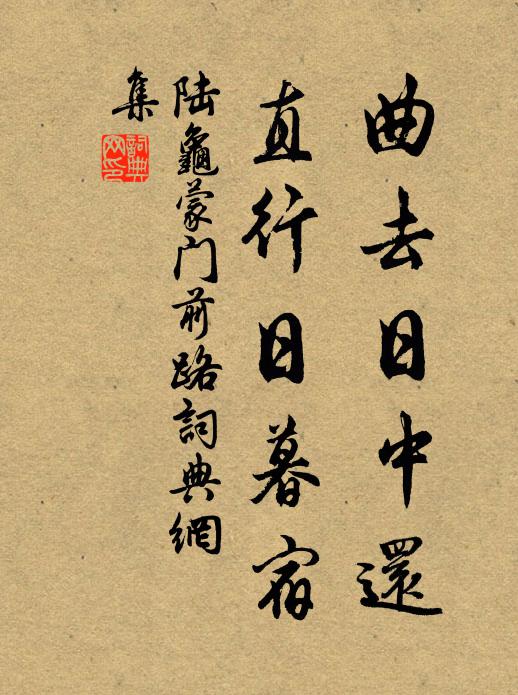 曲去日中還
直行日暮宿
陆龜蒙門前路詞典網
集
詞典
网印